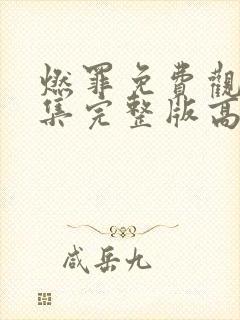 燃罪免費觀
集完整版高
咸岳九